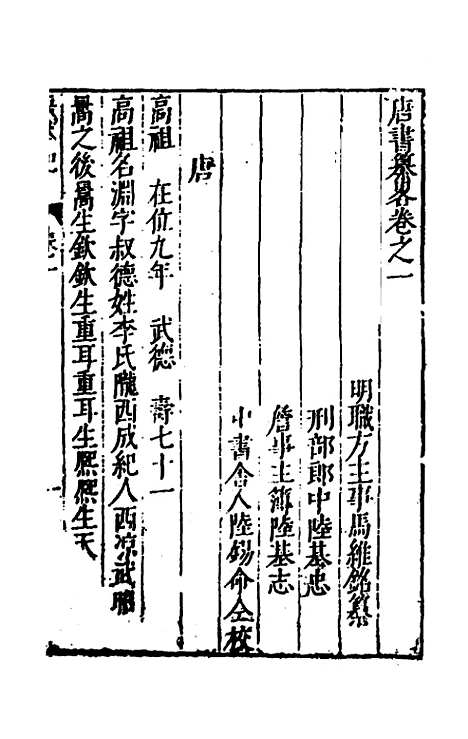 唐書纂畧卷之一
明職方主事馬維銘纂
刑部郎中陸基忠
詹事主簿陸基志
中書舍人陸錫命仝校
唐
高祖 在位九年 武德 壽七十一
高祖名淵字叔德姓李氏隴西成紀人西涼武昭
暠之後暠生歆歆生重耳重耳生熈熈生天